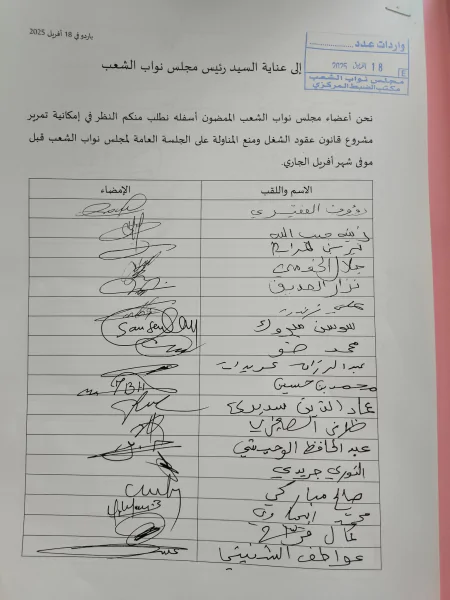 باردو في 18 أفريل 2025
واردات عدد
18 2025
مجلس نواب الشعب
مكتب الضبط المركزي
إلى عناية السيد رئيس مجلس نواب الشعب
نحن أعضاء مجلس نواب الشعب الممضون أسفله نطلب منكم النظر في إمكانية تمرير
مشروع قانون عقود الشغل ومنع المناولة على الجلسة العامة لمجلس نواب الشعب قبل
موفى شهر أفريل الجاري.
الاسم واللقب الإمضاء
رؤوف الفقيري
زينة جيب الله
نرمين
جلال الخدمي
نزار الصديق
سوسن مبروك
محمد ضو
عبد الرزاق عويدات
محمد بن حسين
عماد الدين سديري
طارق
عبد الحافظ الوحيشي
النوري جريدي
صالح مباركي
محمد
كمال فراح
عواطف الشنيتي